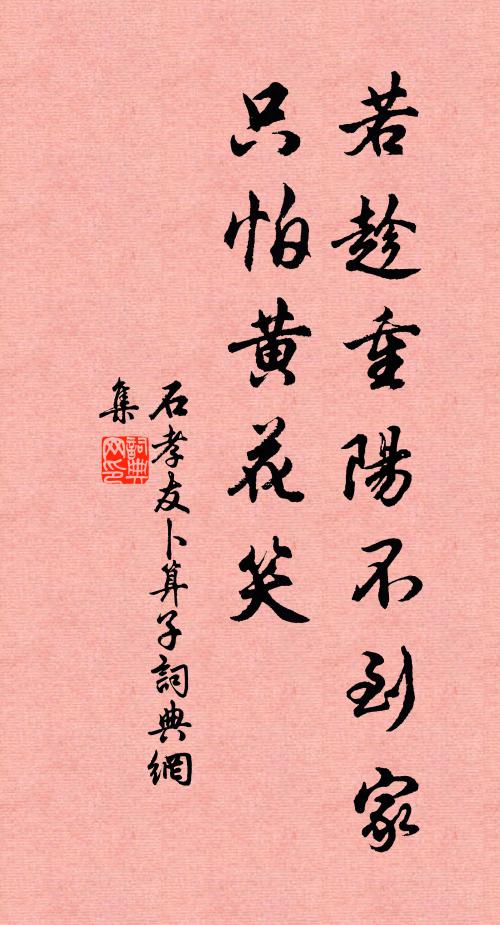 若趁重陽不到家
只怕黄花笑
石孝友卜算子詞典網
集
詞典網印